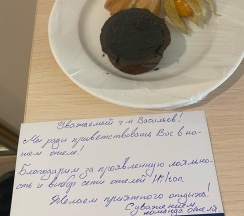 Уважаемый г-н Васильев!
Мы рады приветствовать Вас в на-
шем отеле!
Благодарим за проявленную лояльно-
сть и выбор сети отелей Hilton.
Желаем приятного отдыха!
С уважением,
команда отеля